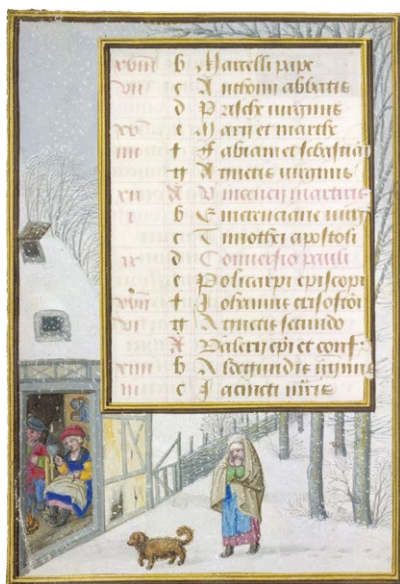 xviii b Marcelli pape
vii c Anthonii abbatis
d Prische virginis
xv e Marii et marthe
iiii f Fabiani et sebastian
g Agnetis virginis
xii A Vincencii martiris
i b Emerenciane virg
c Timothei apostoli
ix d Conversio pauli
e Policarpi episcopi
xvii f Johannis crisostomi
vi g Agnetis secundo
A Valerii epi et conf
xiiii b Aldegundis virginis
iii c Jacincti mris